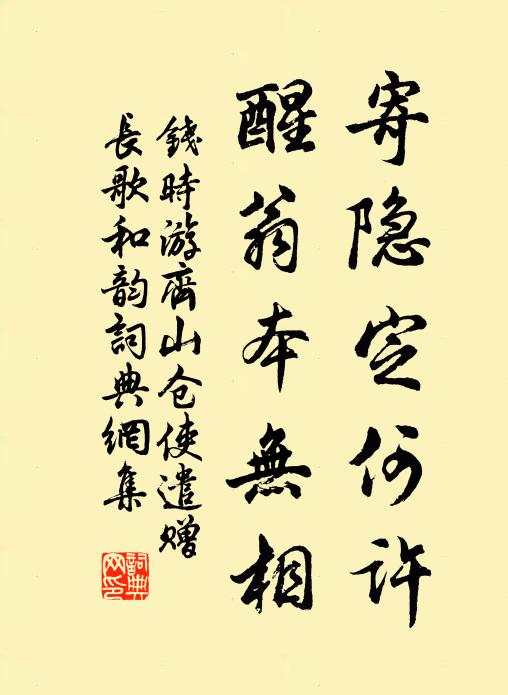 寄隐定何许
醒翁本無相
錢時游齊山仓使遣赠
長歌和韵詞典網集
詞典网印